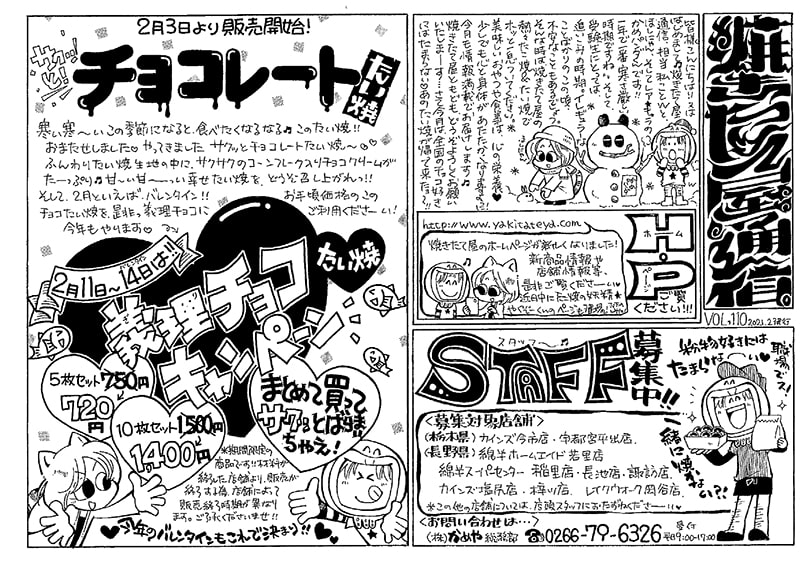 焼きたて屋通信
VOL.110 2023.2.3発行
皆様こんにちは！ハロは
はじめまして♪焼きたて屋
通信担当 私こんと
ほしにゃん そしてレディ もっつの
かめらなんです！！
一年で一番寒さ厳しい
時期ですね…そして、
受験生にとっては、
追い込みの時期！イレギュラーな
ことばかりのこの頃、
不安なこともあるでしょう。
そんな時は焼きたて屋の
熱〜いたこ焼＆たい焼で
ホッと一息ついてください。
美味しいおやつや食事は、心の栄養♡
少しでも心と身体が、あたたかくなりますように
今月も情報満載でお届けします♪
焼きたて屋ともども、どうぞよろしくお願い
いたしま〜す…さて今月は、全国のチョコ好き
にはたまらない♡あのたい焼が帰って来た〜っ！！
2月3日より販売開始！
サクッ サクッと！
チョコレートたい焼
寒い寒〜いこの季節になると、食べたくなるなる♪このたい焼！！
おまたせしました♡やってきました サクッとチョコレートたい焼〜
ふんわりたい焼生地の中に、サクサクのコーンフレーク入りチョコクリームが
た〜っぷり♪甘〜い甘〜〜い幸せたい焼を、どうぞ召し上がれっ！！
そして、2月といえば、バレンタイン！！ お手頃価格のこの
チョコたい焼を、是非、義理チョコに ご利用くださーい！
今年もやります♡
バレンタイン
2月11日〜14日は！！
たい焼
義理チョコ
キャンペーン
5枚セット 750円
720円
10枚セット 1,500円
1,400円
まとめて買って
サクッとばらまき
ちゃえ！
※期間限定の
商品です！！材料が
終了した店舗より、販売が
終了する為、店舗によって
販売終了時期が異なり
ます。ご了承くださいませ！！
今年のバレンタインもこれで決まり！！
http://www.yakitateya.com
焼きたて屋のホームページが新しくなりました！
新商品情報や
店舗情報等、
是非ご覧くださーい♡
近日中にたい焼の妖精★
やぐにーくんのページも登場！
H・P
ホーム
ページ
ご覧
ください！！
スタッフ〜♪
STAFF
募集中！！
<募集対象店舗>
(栃木県) カインズ今市店・宇都宮平出店
(長野県) 綿半ホームエイド若里店
綿半スーパーセンター 稲里店・長池店・諏訪店
カインズ塩尻店・梓川店 レイクウォーク岡谷店
※この他の店舗については、店頭スタッフにおたずねくださーい♡
<お問い合わせは…>
(株)かめや 総務部 ☎0266-79-6326 受付 平日9:00-17:00
粉物好きには
たまらな〜い♡
職場でス！
一緒に焼かない?!